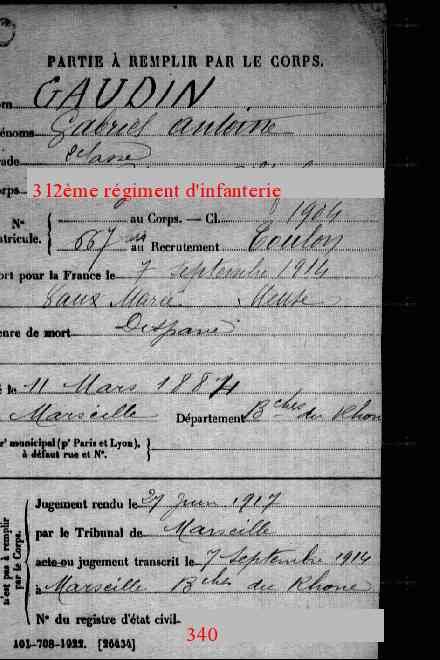 PARTIE À REMPLIR PAR LE CORPS.
om GAUDIN
énoms Gabriel Antoine
rade 2e classe
orps 312ème régiment d'infanterie
N° atricule. { au Corps. — Cl. 1904
667 au Recrutement Toulon
ort pour la France le 7 septembre 1914
Vaux Marie Meuse
enre de mort Disparu
é le 11 Mars 1884
Marseille Département Bches du Rhon
r' municipal (p' Paris et Lyon), à défaut rue et N°. }
n'est pas à remplir par le Corps.
Jugement rendu le 27 Juin 1917
par le Tribunal de Marseille
acte ou jugement transcrit le 7 Septembre 1914
à Marseille Bches du Rhone
N° du registre d'état civil
340
101-708-1922. [26434]